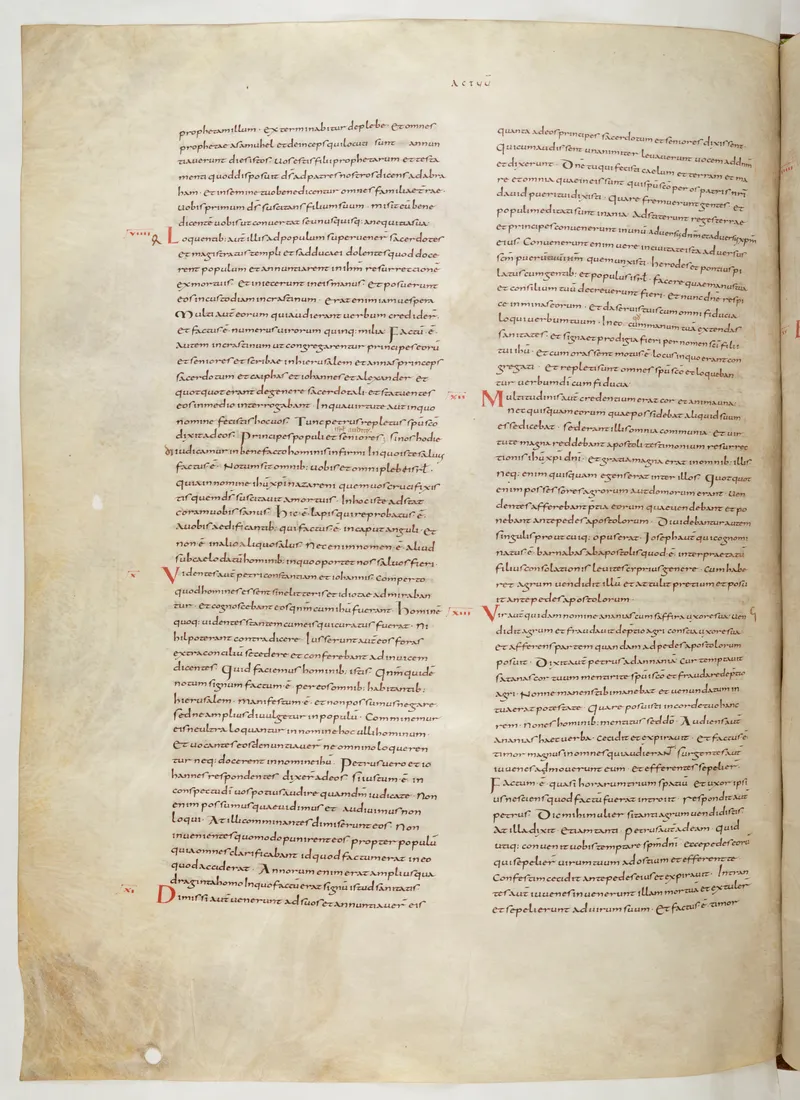 ACTUŪ
prophetam illum · exterminabitur de plebe · Et omnes
prophetae a samuhel et deinceps qui locuti sunt · annun
tiauerunt dies istos · Uos estis filii prophetarum et testa
menti quod disposuit ds̄ ad patres nostros dicens ad abra
ham · et in semine tuo benedicentur omnes familiae terrae ·
uobis primum ds̄ suscitans filium suum · misit eū bene
dicentē uobis ut conuertat se unusquisq; a nequitia sua ·
uiiii Loquentib; aut̄ illis ad populum superuener̄ sacerdotes
et magistratus templi et sadducaei dolentes quod doce
rent populum et annuntiarent in ihm̄ resurrectionē
ex mortuis · et iniecerunt in eis manus · et posuerunt
eos in custodiam in crastinum · erat enim iam uespera
Multi aut̄ eorum qui audierant uerbum credider̄ ·
et factus ē numerus uirorum quinq; milia · Factū ē ·
autem in crastinum ut congregarentur principes eorū
et seniores et scribae in hierusalem et annas princeps
sacerdotum et caiphas et iohannes et alexander · et
quotquot erant de genere sacerdotali · et statuentes
eos in medio interrogabant · In qua uirtute aut in quo
nomine fecistis hoc uos · Tunc petrus repletus sp̄u scō
dixit ad eos · Principes populi et seniores · si nos hodie
diiudicamur in benefacto hominis infirmi In quo iste saluus
factus ē · Notum sit omnib; uobis et omni plebi isrl̄ ·
quia in nomine ihū xp̄i nazareni quem uos crucifixis
tis quem ds̄ suscitauit a mortuis · In hoc iste adstat
coram uobis sanus · Hic ē lapis qui reprobatus ē ·
a uobis aedificantib; qui factus ē in caput anguli · Et
non ē in alio aliquo salus · Nec enim nomen ē aliud
sub caelo datū hominib; in quo oportet nos saluos fieri ·
x Videntes aut̄ petri constantiam et iohannis · Comperto
quod homines essent sine litteris et idiotae admiraban
tur · et cognoscebant eos qnm̄ cum ihū fuerant · Hominē
quoq; uidentes stantem cum eis qui curatus fuerat · Ni
hil poterant contradicere · Iusserunt aut̄ eos foras
extra conciliū secedere · et conferebant ad inuicem
dicentes · Quid faciemus hominib; istis · Qnm̄ quidē
notum signum factum ē · per eos omnib; habitantib;
hierusalem · Manifestum ē · et non possumus negare ·
sed ne amplius diuulgetur in populū · Comminemur
eis ne ultra loquantur in nomine hoc ulli hominum ·
Et uocantes eos denuntiauer̄ ne omnino loqueren
tur neq; docerent in nomine ihū · Petrus uero et io
hannes respondentes dixer̄ ad eos · Si iustum ē in
conspectu dī uos potius audire quam dm̄ iudicate · Non
enim possumus quae uidimus et audiuimus non
loqui · At illi comminantes dimiserunt eos · Non
inuenientes quomodo punirent eos propter populū
quia omnes clarificabant id quod factum erat in eo
quod acciderat · Annorum enim erat amplius qua
draginta homo In quo factū erat signū istud sanitatis
xi Dimissi aut̄ uenerunt ad suos et annuntiauer̄ eis
quanta ad eos principes sacerdotum et seniores dixissent
Qui cum audissent unanimiter leuauerunt uocem ad dnm̄
et dixerunt · Dne tu qui fecisti caelum et terram et ma
re et omnia quae in eis sunt · qui sp̄u scō per os patris nr̄i
dauid pueri tui dixisti · Quare fremuerunt gentes · et
populi meditati sunt inania · Adstiterunt reges terrae
et principes conuenerunt in unū aduersus dnm̄ et aduersus xp̄m
eius · Conuenerunt enim uere in ciuitate ista aduersus
scm̄ puerū tuum ihm̄ quem unxisti · herodes et pontius pi
latus cum gentib; et populis isrl̄ · facere quae manus tua
et consilium tuū decreuerunt fieri · et nunc dne respi
ce in minas eorum · et da seruis tuis cum omni fiducia
loqui uerbum tuum · In eo cū manum tuā extendas
sanitates et signa et prodigia fieri per nomen sc̄i filii
tui ihū · et cum orassent motus ē locus in quo erant con
gregati · et repleti sunt omnes sp̄u scō et loqueban
tur uerbum dī cum fiducia
xii Multitudinis aut̄ credentium erat cor et anima una ·
nec quisquam eorum quae possidebat aliquid suum ·
esse dicebat · sed erant illis omnia communia · et uir
tute magna reddebant apostoli testimonium resurrec
tionis ihū xp̄i dn̄i · et gratia magna erat in omnib; illis
Neq; enim quisquam egens erat inter illos · Quotquot
enim possessores agrorum aut domorum erant · Uen
dentes afferebant pretia eorum quae uendebant et po
nebant ante pedes apostolorum · Diuidebantur autem
singulis prout cuiq; opus erat · Ioseph aut̄ qui cognomi
natus ē · barnabas ab apostolis quod ē interpraetatū
filius consolationis leuites cyprius genere · cum habe
ret agrum uendidit illū et attulit pretium et posu
it ante pedes apostolorum ·
xiii Vir aut̄ quidam nomine ananias cum saffira uxore sua uen
didit agrum et fraudauit de ptio agri conscia uxore sua ·
et afferens partem quandam ad pedes apostolorum
posuit · Dixit aut̄ petrus ad annania Cur temptauit
satanas cor tuum mentiri te sp̄u scō et fraudare de ptio
agri · Nonne manens tibi manebat et uenundatum in
tua erat potestate · Quare posuisti in corde tuo hanc
rem · non es hominib; mentitus sed dō · Audiens aut̄
ananias haec uerba · cecidit et expirauit · et factus ē ·
timor magnus in omnes qui audierant Surgentes aut̄
iuuenes admouerunt eum · et efferentes sepelier̄ ·
Factum ē quasi horarum trium spatiū · et uxor ipsi
us nesciens quod factū fuerat introiit · respondit aut̄
petrus · Dic mihi mulier si tanti agrum uendidistis
At illa dixit · Etiam tanti · petrus aut̄ ad eam · quid
utiq; conuenit uobis temptare spm̄ dn̄i · Ecce pedes eorū
qui sepelier̄ uirum tuum ad ostium et efferent te
Confestim cecidit ante pedes eius et expirauit · Intran
tes aut̄ iuuenes inuenerunt illam mortuā et extuler̄
et sepelierunt ad uirum suum · Et factus ē timor